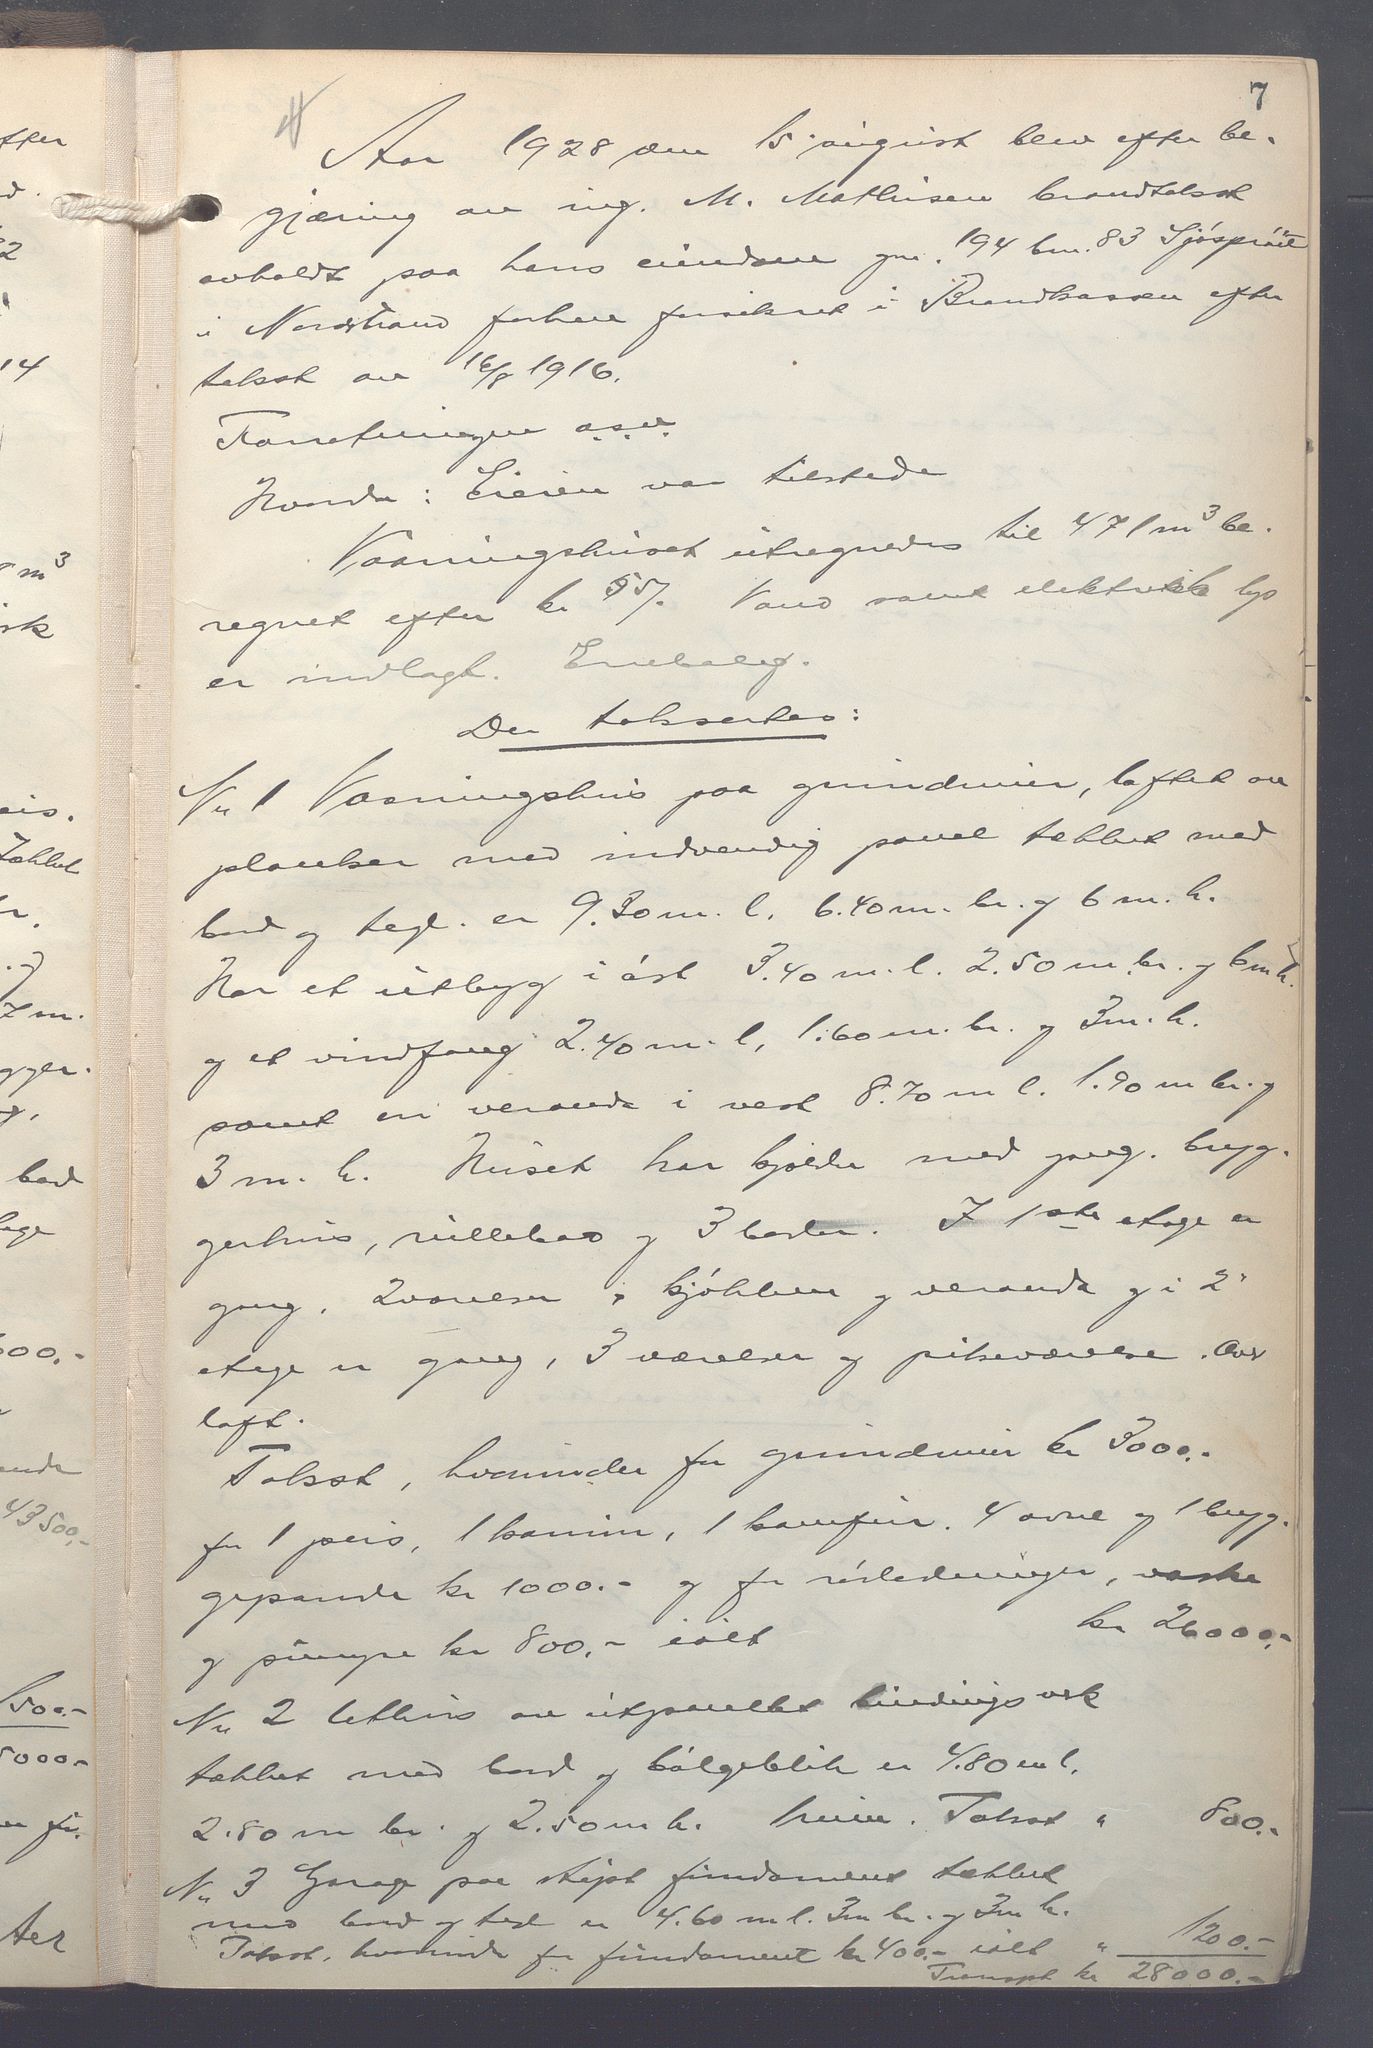 7
Aar 1928 den 15 august blev efter be-
gjæring av ing. M. Mathisen brandtakst
avholdt paa hans eiendom gnr. 194 bnr. 83 Sjøsprøit
i Nordstrand forhen forsikret i Brandkassen efter
takst av 16/8 1916.
Forretningen o.s.v.
Hvorda: Eieren var tilstede
Vaaningshuset utregnedes til 471 m³ be-
regnet efter kr 55/. Vand samt elektrisk lys
er indlagt. Enebolig.
Der takseres:
Nr 1 Vaaningshus paa grundmur, laftet av
planker med indvendig panel tækket med
bord og tegl. er 9.30 m. l. 6.40 m. br. og 6 m. h.
Har et utbyg i øst 3.40 m. l. 2.50 m. br. og 6 m h.
og et vindfang 2.40 m. l, 1.60 m. br. og 3 m. h.
samt en veranda i vest 8.70 m l. 1.90 m br. og
3 m. h. Huset har kjelder med gang. bryg-
gerhus, rullebod og 3 boder. I 1ste etage er
gang, 2 værelser, kjøkken og veranda og i 2'
etage er gang, 3 værelser og pikeværelse. Over
loft.
Takst, hvorunder for grundmur kr 3000.-
for 1 peis, 1 kamin, 1 komfur. 4 ovne og 1 bryg-
gepande kr 1000.- og for rørledninger, vaske
og pumpe kr 800.- ialt kr 26000.-
Nr 2 Uthus av utpanellet bindingsverk
tækket med bord og bølgeblik er 4.80 m l.
2.80 m br. og 2.50 m h. Takst " 800.-
Nr 3 Garage paa støpt fundament tækket
med bord og tegl er 4.60 m l. 3 m br. og 3 m h.
Takst, hvorunder for fundament kr 400.- ialt " 1200.-
Transport kr 28000.-